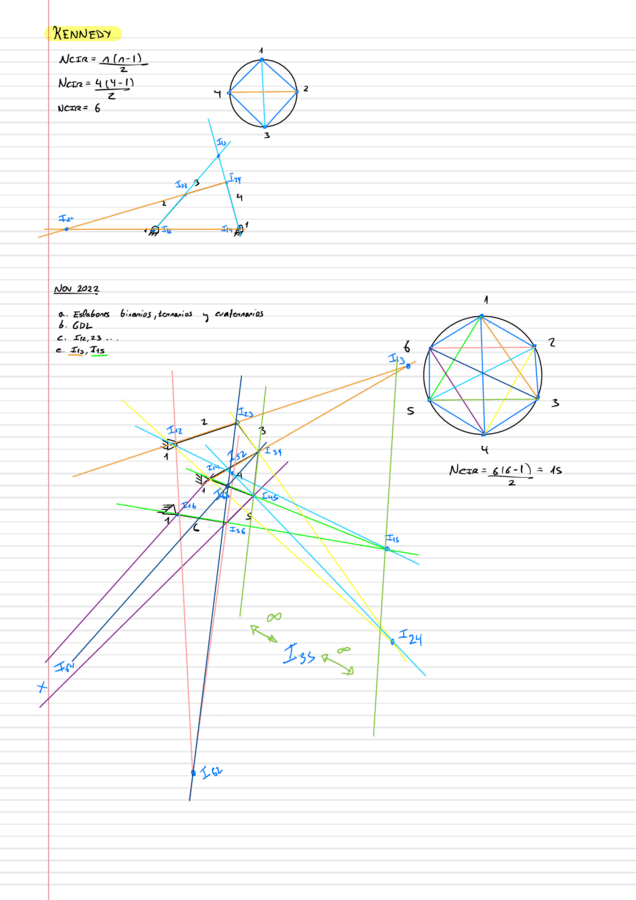 KENNEDY
NCIR = n(n-1)
2
NCIR = 4(4-1)
2
NCIR = 6
1
4
2
3
3
I24
2
4
1
I14
NOV 2022
a. Eslabones binarios, ternarios y cuaternarios
b. GDL
c. I12, 23 ...
e. I13, I15
1
6
2
5
3
4
NCIR = 6(6-1) = 15
2
I13
I12
2
I23
1
3
I34
I52
4
1
I16
I45
1
6
5
I56
I15
∞
I35
∞
I24
I64
X
I62